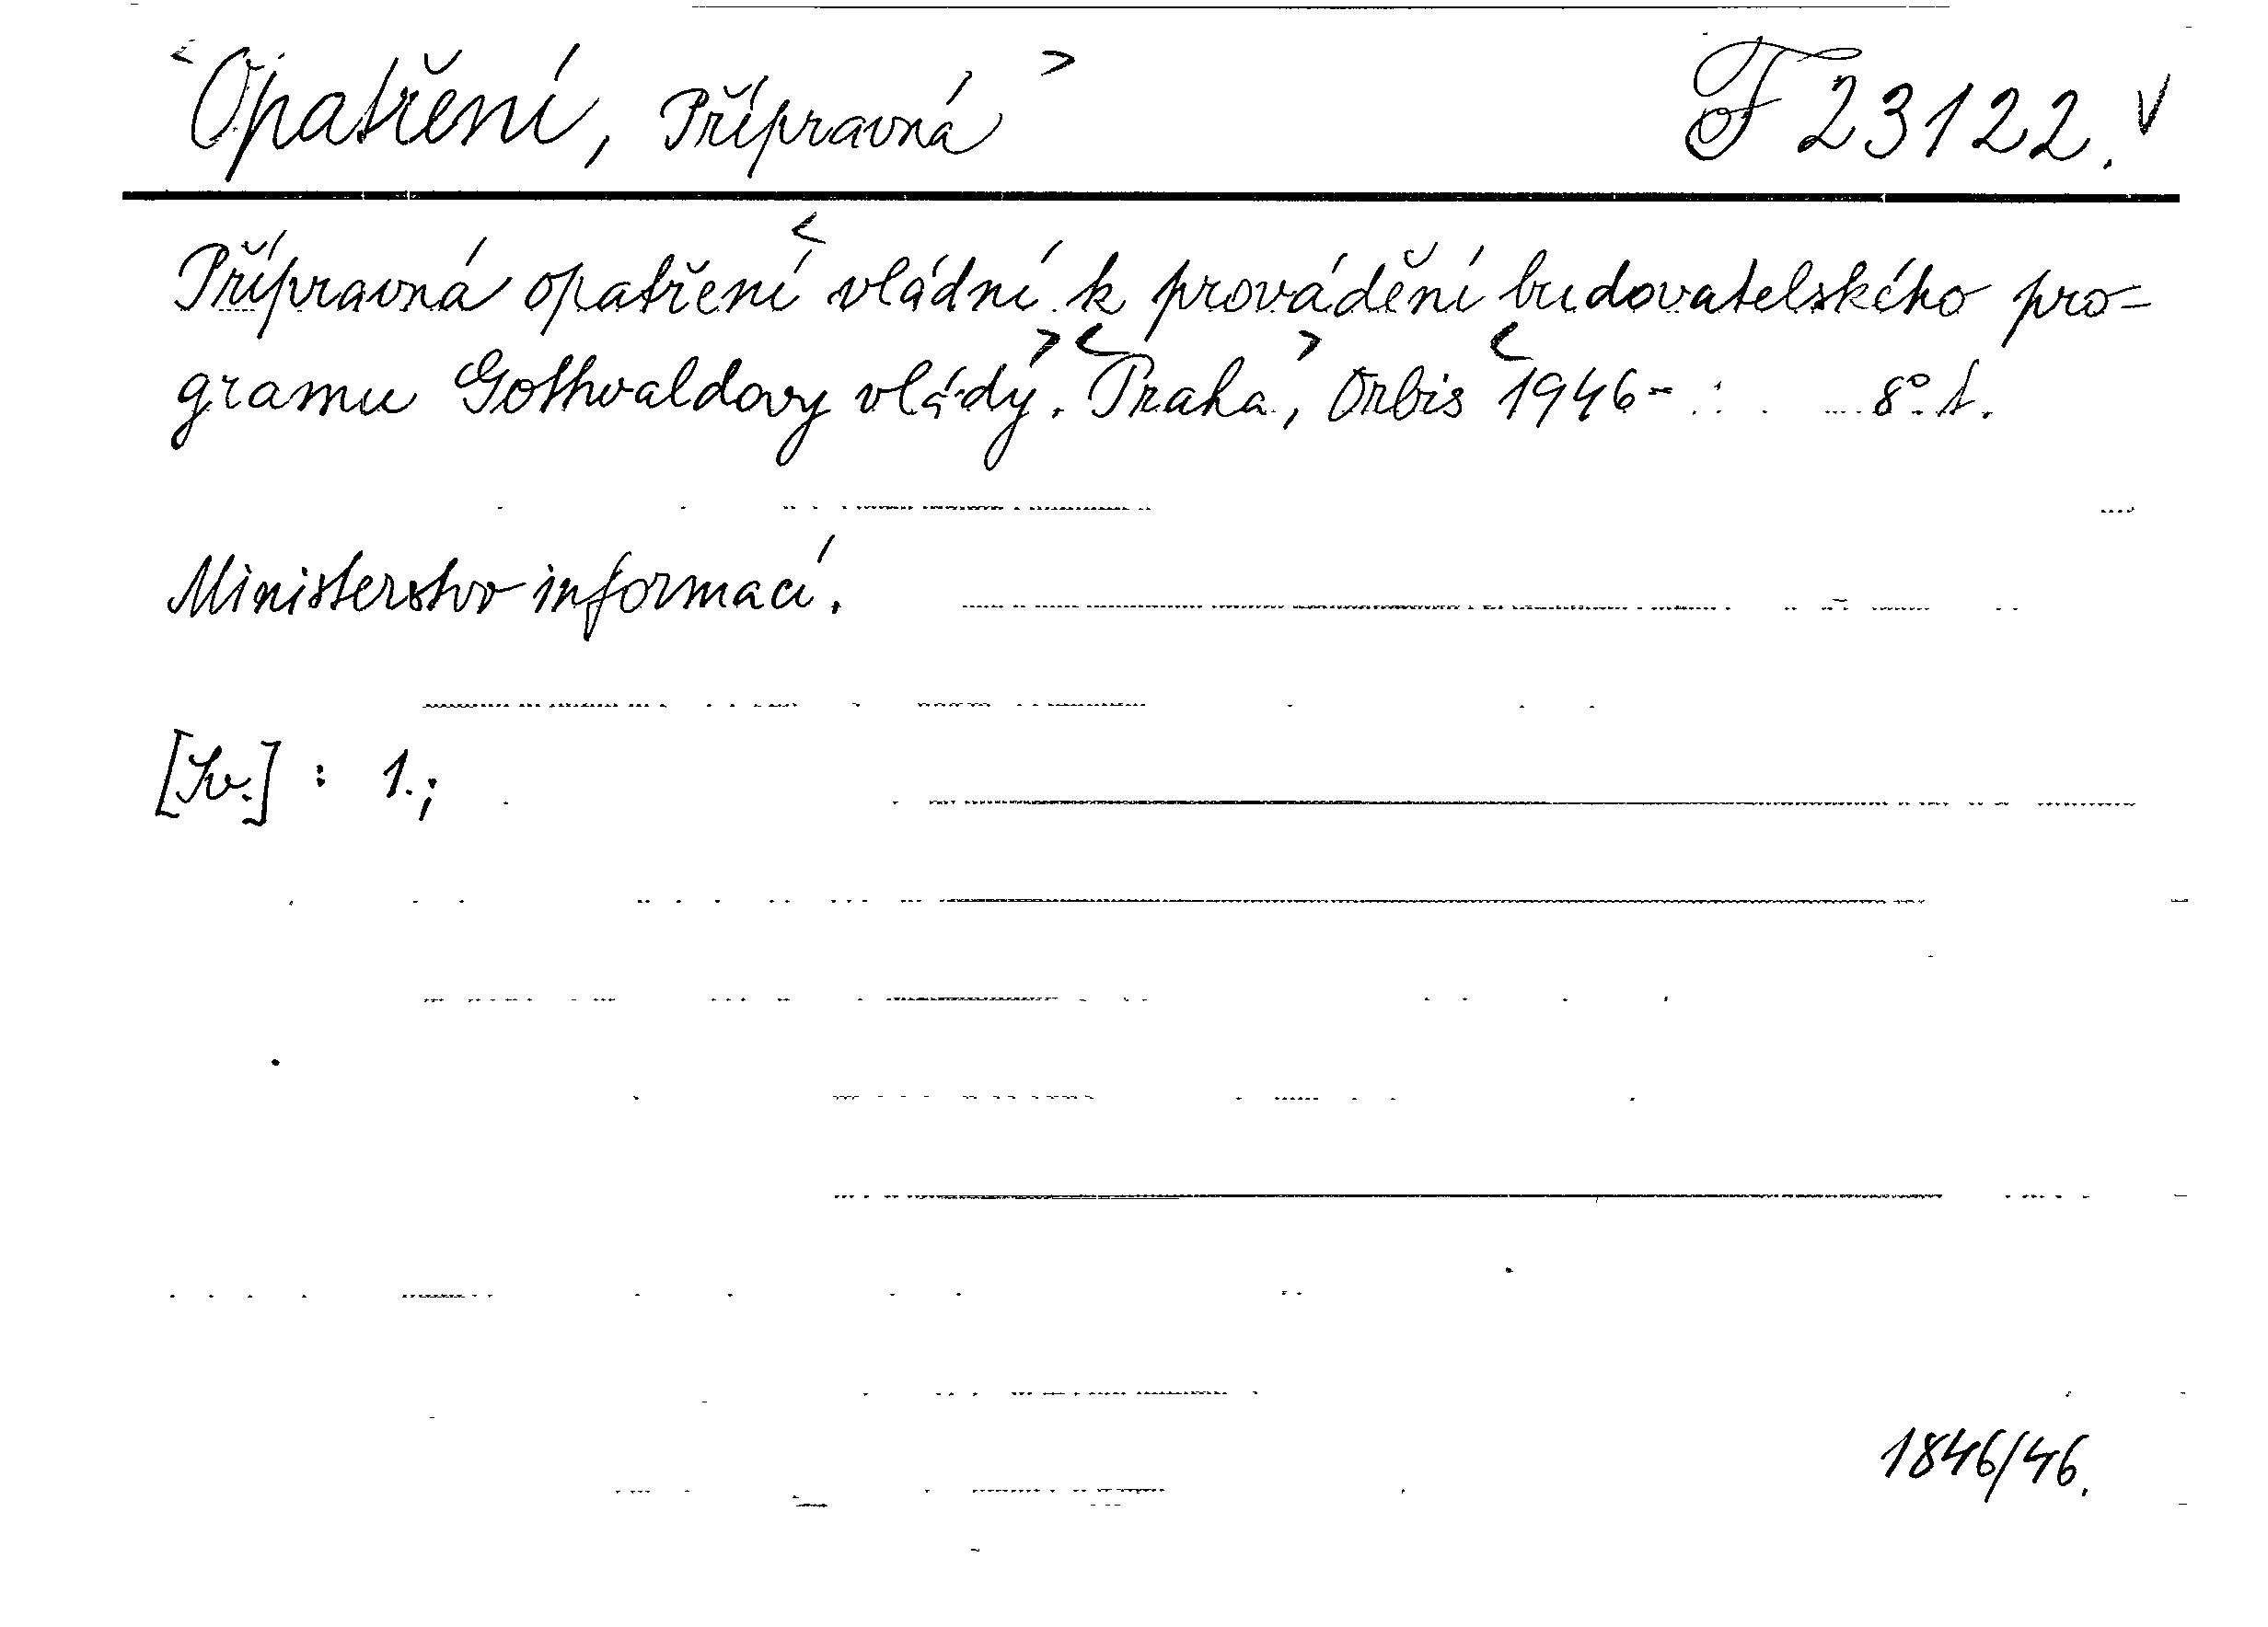 <Opatření, Přípravná> F 23122. V
Přípravná opatření < vládní k provádění budovatelského pro=
gramu Gottwaldovy vlády.> <Praha,> Orbis <1946- 8°. t.
Ministerstvo informací.
[Sv.] : 1.;
1846/46.